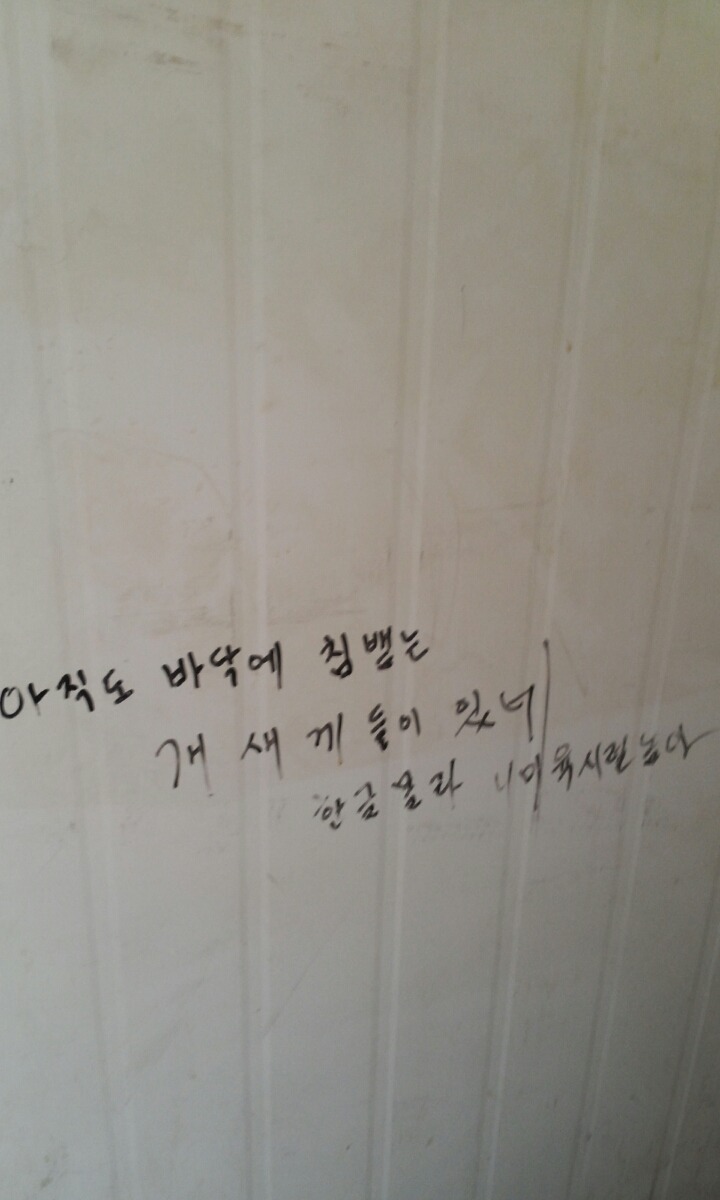 아직도 바닥에 침뱉는
개새끼들이 있네
한글몰라 니미육시럴놈아